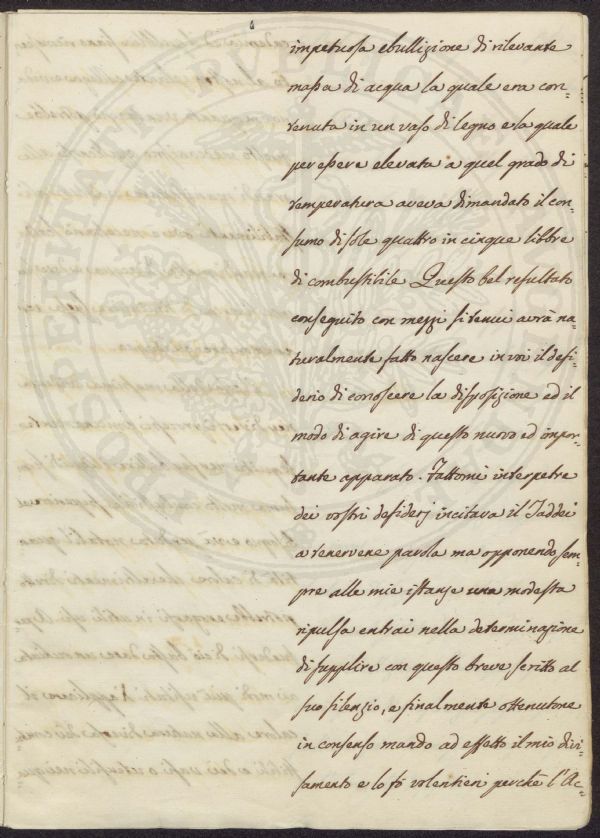 impetuosa ebullizione di rilevante
massa di acqua la quale era con-
tenuta in un vaso di legno e la quale
per essere elevata a quel grado di
temperatura aveva dimandato il con-
sumo di sole quattro in cinque libbre
di combustibile Questo bel resultato
conseguito con mezzi si tenui avrà na-
turalmente fatto nascere in voi il desi-
derio di conoscere la disposizione ed il
modo di agire di questo nuovo ed impor-
tante apparato. Fattomi interpetre
dei vostri desiderj incitava il Taddei
a tenervene parola ma opponendo sem-
pre alle mie istanze una modesta
ripulsa entrai nella determinazione
di supplire con questo breve scritto al
suo silenzio, e finalmente ottenutone
in consenso mando ad effetto il mio divi-
samento e lo fò volentieri perchè l'Ac-